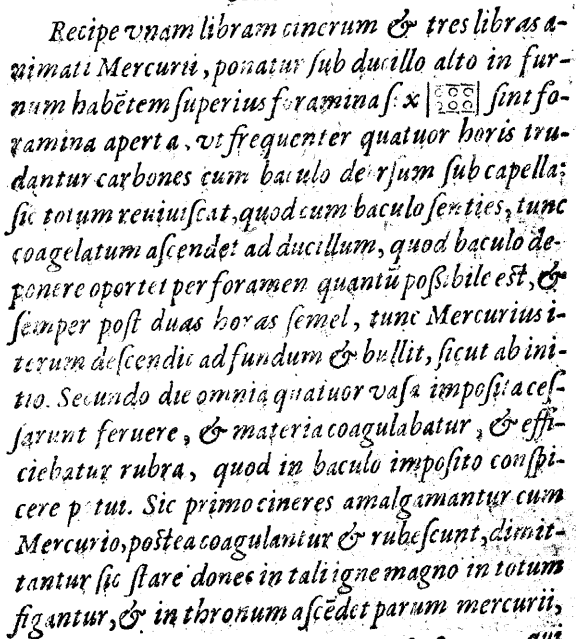 Recipe vnam libram cinerum & tres libras a-
nimati Mercurii, ponatur ſub ducillo alto in fur-
num habētem ſuperius foramina ſ: x ſint fo-
ramina aperta, vt frequenter quatuor horis tru-
dantur carbones cum baculo deorſum ſub capella:
ſic totum reuiuiſcat, quod cum baculo ſenties, tunc
coagelatum aſcendet ad ducillum, quod baculo de-
ponere oportet per foramen quantū poßibile est, &
ſemper poſt duas horas ſemel, tunc Mercurius i-
terum deſcendit ad fundum & bullit, ſicut ab ini-
tio. Secundo die omnia quatuor vaſa impoſita ceſ-
ſarunt feruere, & materia coagulabatur, & effi-
ciebatur rubra, quod in baculo impoſito conſpi-
cere potui. Sic primo cineres amalgamantur cum
Mercurio, postea coagulantur & rubeſcunt, dimit-
tantur ſic ſtare donec in tali igne magno in totum
figantur, & in thronum aſcēdet parum mercurii,
qui